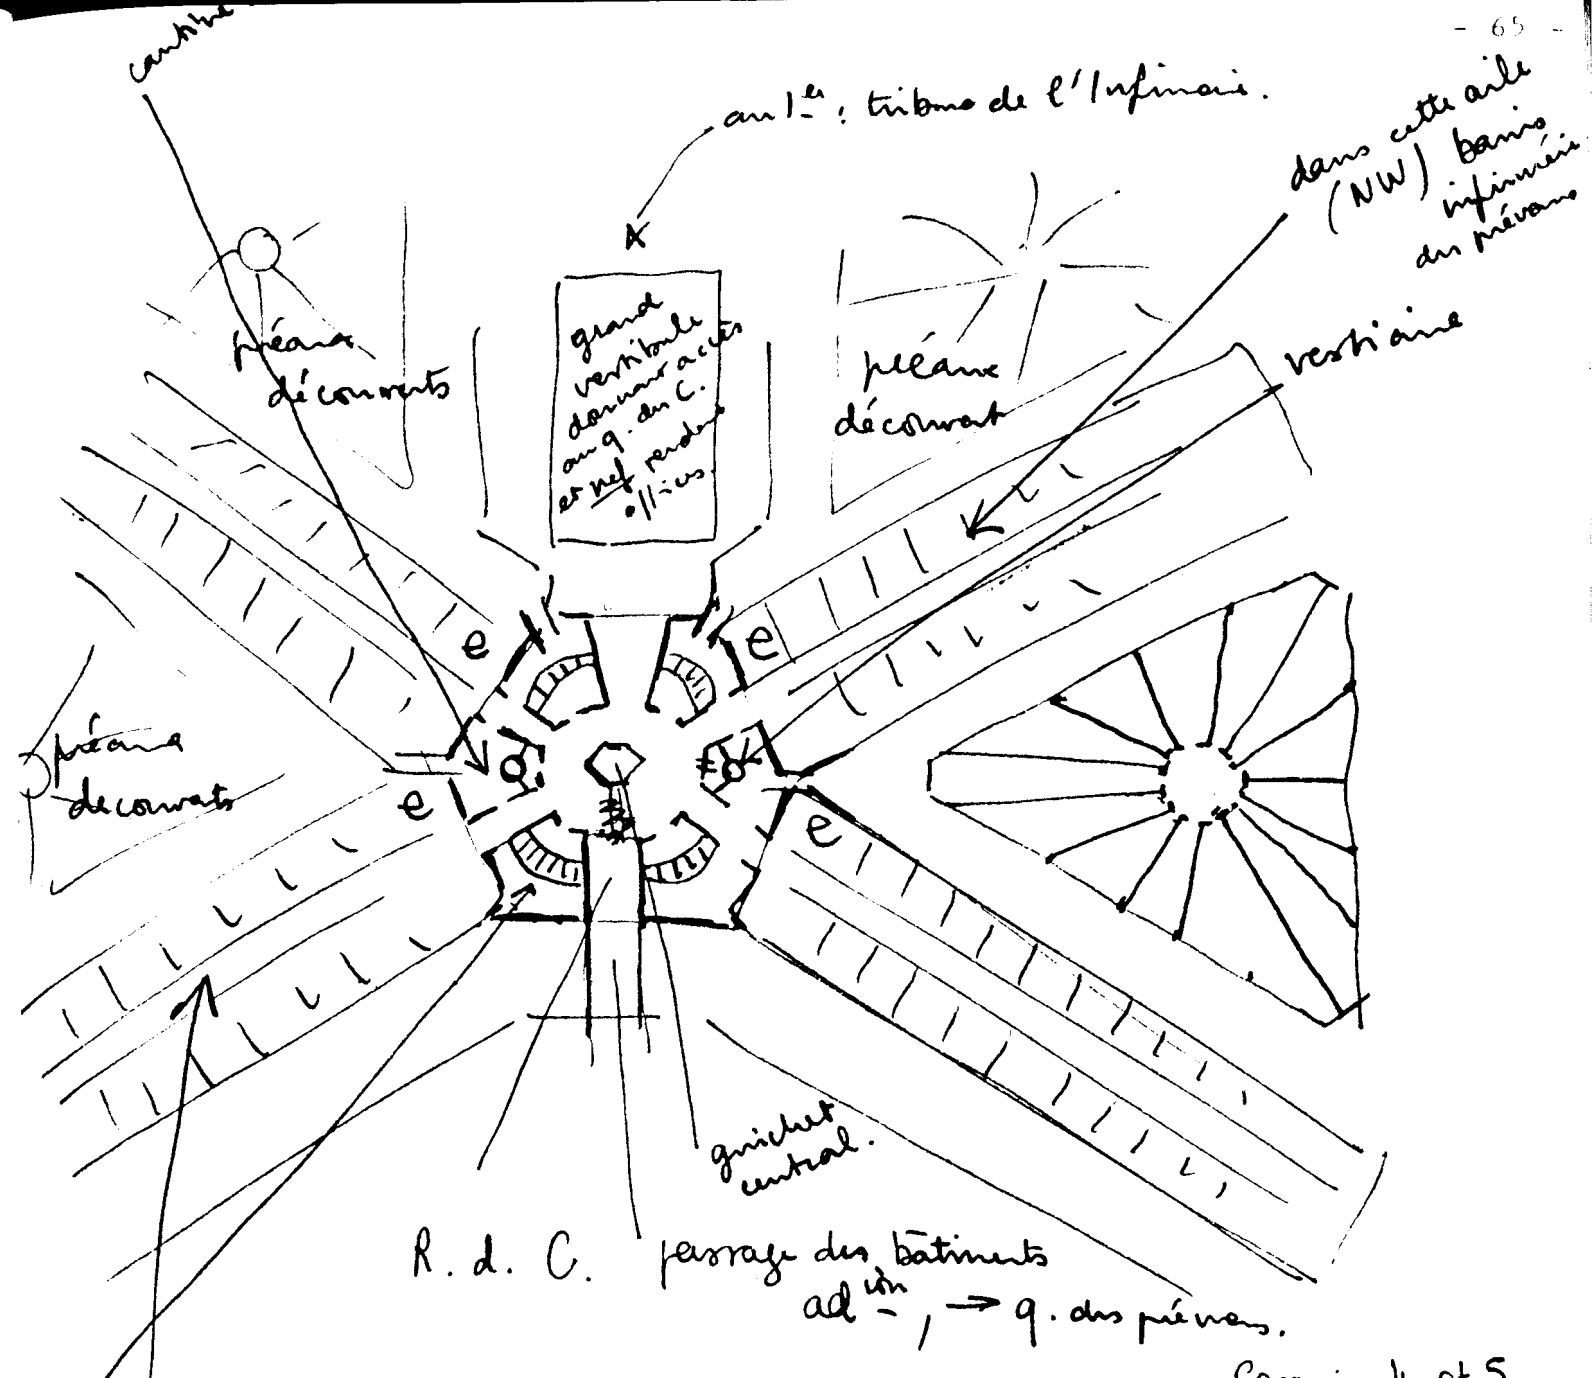 - 65 -
cantine
au 1er : tribune de l'Infirmerie.
dans cette aile
(NW) bains
infirmerie
des prévenus
vestiaire
préaux
découverts
grand
vestibule
donnant accès
au q. du C.
et nef pendant
offices.
préaux
découverts
e
e
préaux
découverts
e
e
guichet
central.
R. d. C.
passage des bâtiments
adion, → q. des prévenus.
4 et 5